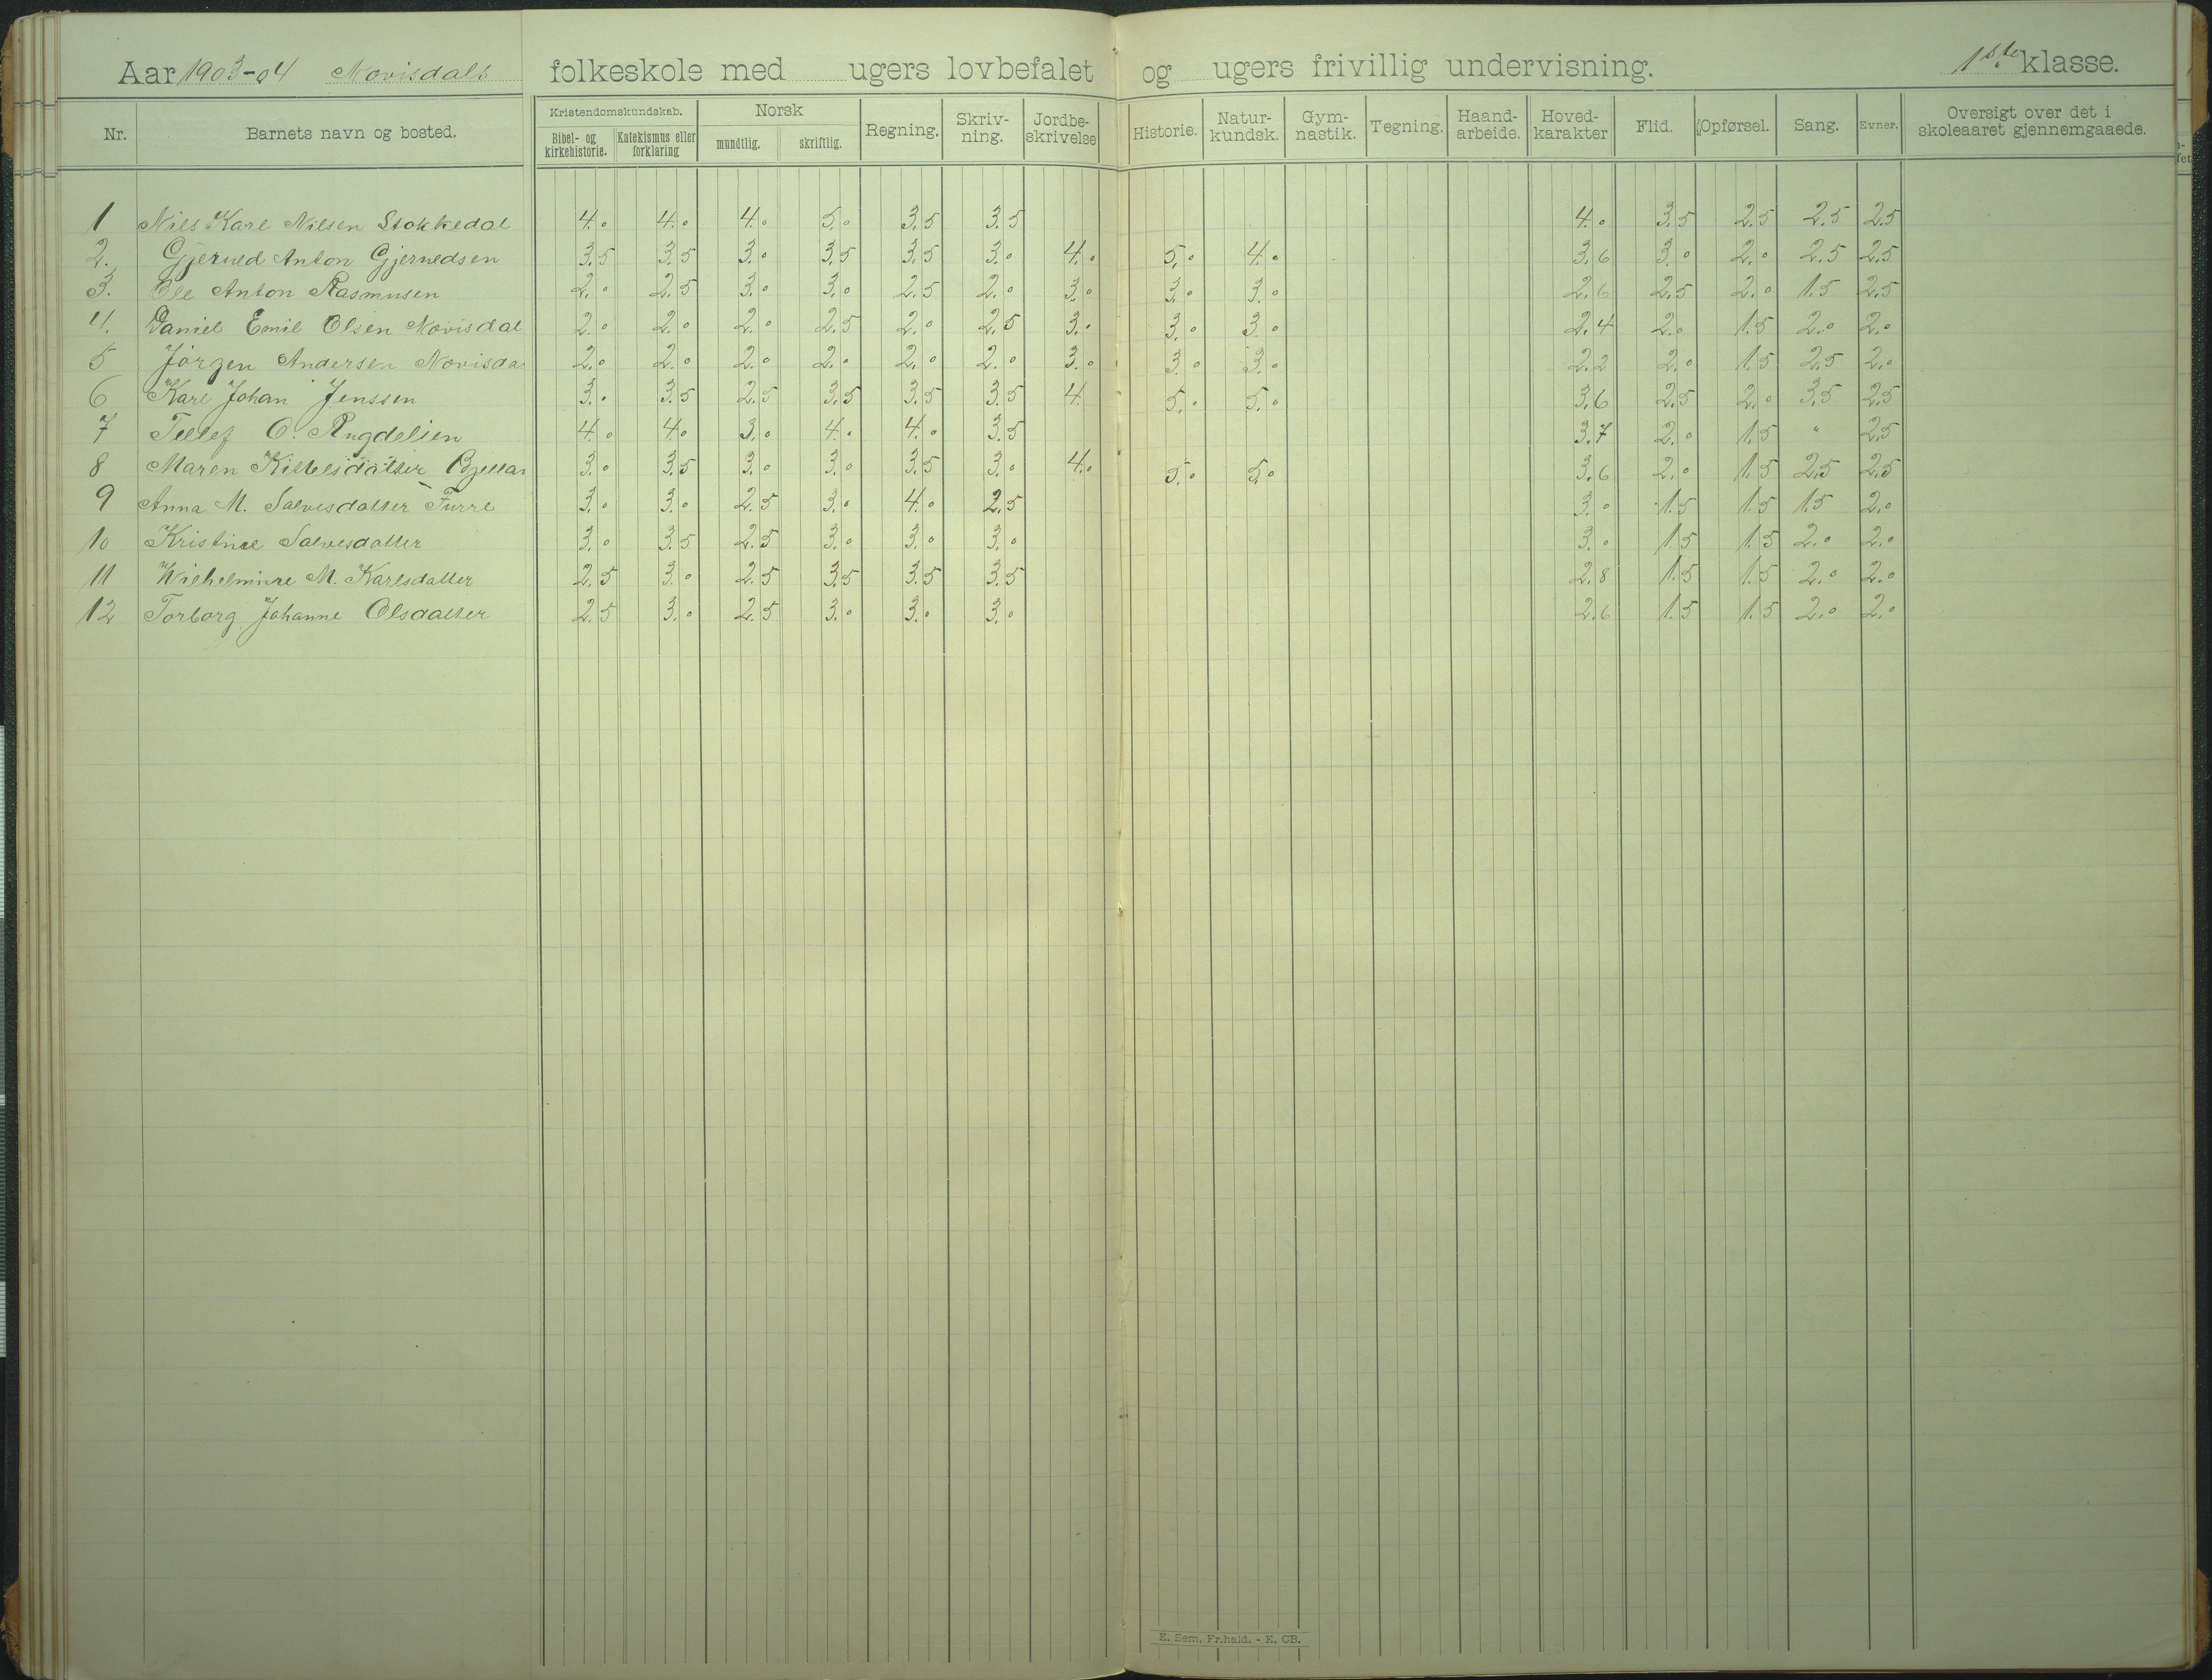 Aar 1903-04 Novisdals folkeskole med ugers lovbefalet og ugers frivillig undervisning. 1ste klasse.
Nr. Barnets navn og bosted. Kristendomskundskab. Bibel- og kirkehistorie. Katekismus eller forklaring Norsk mundtlig. skriftlig. Regning. Skriv-ning. Jordbe-skrivelse Historie. Natur-kundsk. Gym-nastik. Tegning. Haand-arbeide. Hoved-karakter Flid. Opførsel. Sang. Evner. Oversigt over det i skoleaaret gjennemgaaede.
1 Nils Karl Nilsen Stokkedal 4.0 4.0 4.0 5.0 3.5 3.5 4.0 3.5 2.5 2.5 2.5
2. Gjerued Anton Gjeruedsen 3.5 3.5 3.0 3.5 3.5 3.0 4.0 5.0 4.0 3.6 3.0 2.0 2.5 2.5
3. Ole Anton Rasmusen 2.0 2.5 3.0 3.0 2.5 2.0 3.0 3.0 3.0 2.6 2.5 2.0 1.5 2.5
4. Daniel Emil Olsen Novisdal 2.0 2.0 2.0 2.5 2.0 2.5 3.0 3.0 3.0 2.4 2.0 1.5 2.0 2.0
5 Jörgen Andersen Novisda 2.0 2.0 2.0 2.0 2.0 2.0 3.0 3.0 3.0 2.2 2.0 1.5 2.5 2.0
6 Karl Johan Jenssen 3.0 3.5 2.5 3.5 3.5 3.5 4. 5.0 5.0 3.6 2.5 2.0 3.5 2.5
7 Tellef O. Rugdelien 4.0 4.0 3.0 4.0 4.0 3.5 3.7 2.0 1.5 " 2.5
8 Maren Kittelsdatter Bjellan 3.0 3.5 3.0 3.0 3.5 3.0 4.0 5.0 5.0 3.6 2.0 1.5 2.5 2.5
9 Anna M. Salvesdatter Furre 3.0 3.0 2.5 3.0 4.0 2.5 3.0 1.5 1.5 1.5 2.0
10 Kristine Salvesdatter 3.0 3.5 2.5 3.0 3.0 3.0 3.0 1.5 1.5 2.0 2.0
11 Wilhelmine M. Karlsdatter 2.5 3.0 2.5 3.5 3.5 3.5 2.8 1.5 1.5 2.0 2.0
12 Torborg Johanne Olsdatter 2.5 3.0 2.5 3.0 3.0 3.0 2.6 1.5 1.5 2.0 2.0
E. Sem, Fr.hald. - E. CB.